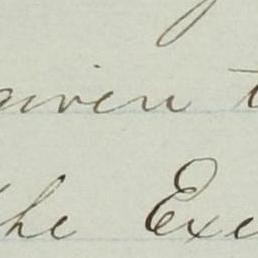 given t
the Exe